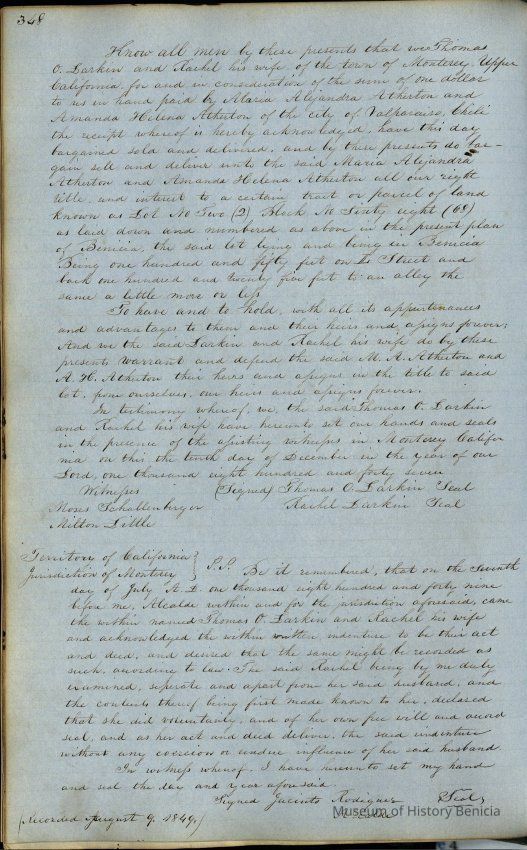 348
Know all men by these presents that we Thomas
O. Larkin and Rachel his wife of the town of Monterey, Upper
California, for and in consideration of the sum of one dollar
to us in hand paid by Maria Alejandra Atherton and
Amanda Helena Atherton of the city of Valparaiso, Chili
the receipt whereof is hereby acknowledged, have this day
bargained sold and delivered, and by these presents do bar-
gain sell and deliver unto the said Maria Alejandra
Atherton and Amanda Helena Atherton all our right
title, and interest to a certain tract or parcel of land
known as Lot No Two (2) Block No Sixty eight (68)
as laid down and numbered as above in the present plan
of Benicia, the said lot lying and being in Benicia
Being one hundred and fifty feet on Street and
back one hundred and twenty five feet to an alley the
same a little more or less
To have and to hold, with all its appurtinances
and advantages to them and their heirs and assigns forever;
And we the said Larkin and Rachel his wife do by these
presents Warrant and defend the said M. A. Atherton and
A. H. Atherton their heirs and assigns in the title to said
lot, from ourselves, our heirs and assigns forever.
In testimony whereof, we, the said Thomas O. Larkin
and Rachel his wife have hereunto set our hands and seals
in the presence of the assisting witness in Monterey Califor
nia on this the tenth day of December in the year of our
Lord, one thousand eight hundred and forty seven
Witnesses (Signed) Thomas O. Larkin Seal
Moses Schallenberger Rachel Larkin Seal
Milton Little
Territory of California }
Jurisdiction of Monterey } S.S. Be it remembered, that on the Seventh
day of July A. D. one thousand eight hundred and forty nine
before me, Alcalde within and for the jurisdiction aforesaid, came
the within named Thomas O. Larkin and Rachel his wife
and acknowledged the within written indenture to be their act
and deed, and desired that the same might be recorded as
such, according to law. The said Rachel being by me duly
examined, seperate and apart from her said husband, and
the contents thereof being first made known to her, declared
that she did voluntarily, and of her own free will and accord
seal, and as her act and deed deliver, the said indenture
without any coercion or undue influence of her said husband
In witness whereof, I have hereunto set my hand
and seal the day and year aforesaid.
Signed Jacinto Rodriguez Seal
(Recorded August 9. 1849,)
Museum of History Benicia